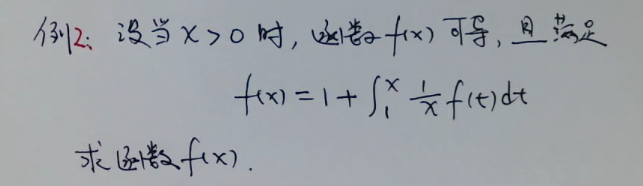 例2: 设当 x > 0 时, 函数 f(x) 可导, 且满足
f(x) = 1 + ∫₁ˣ 1/x f(t)dt
求函数 f(x).